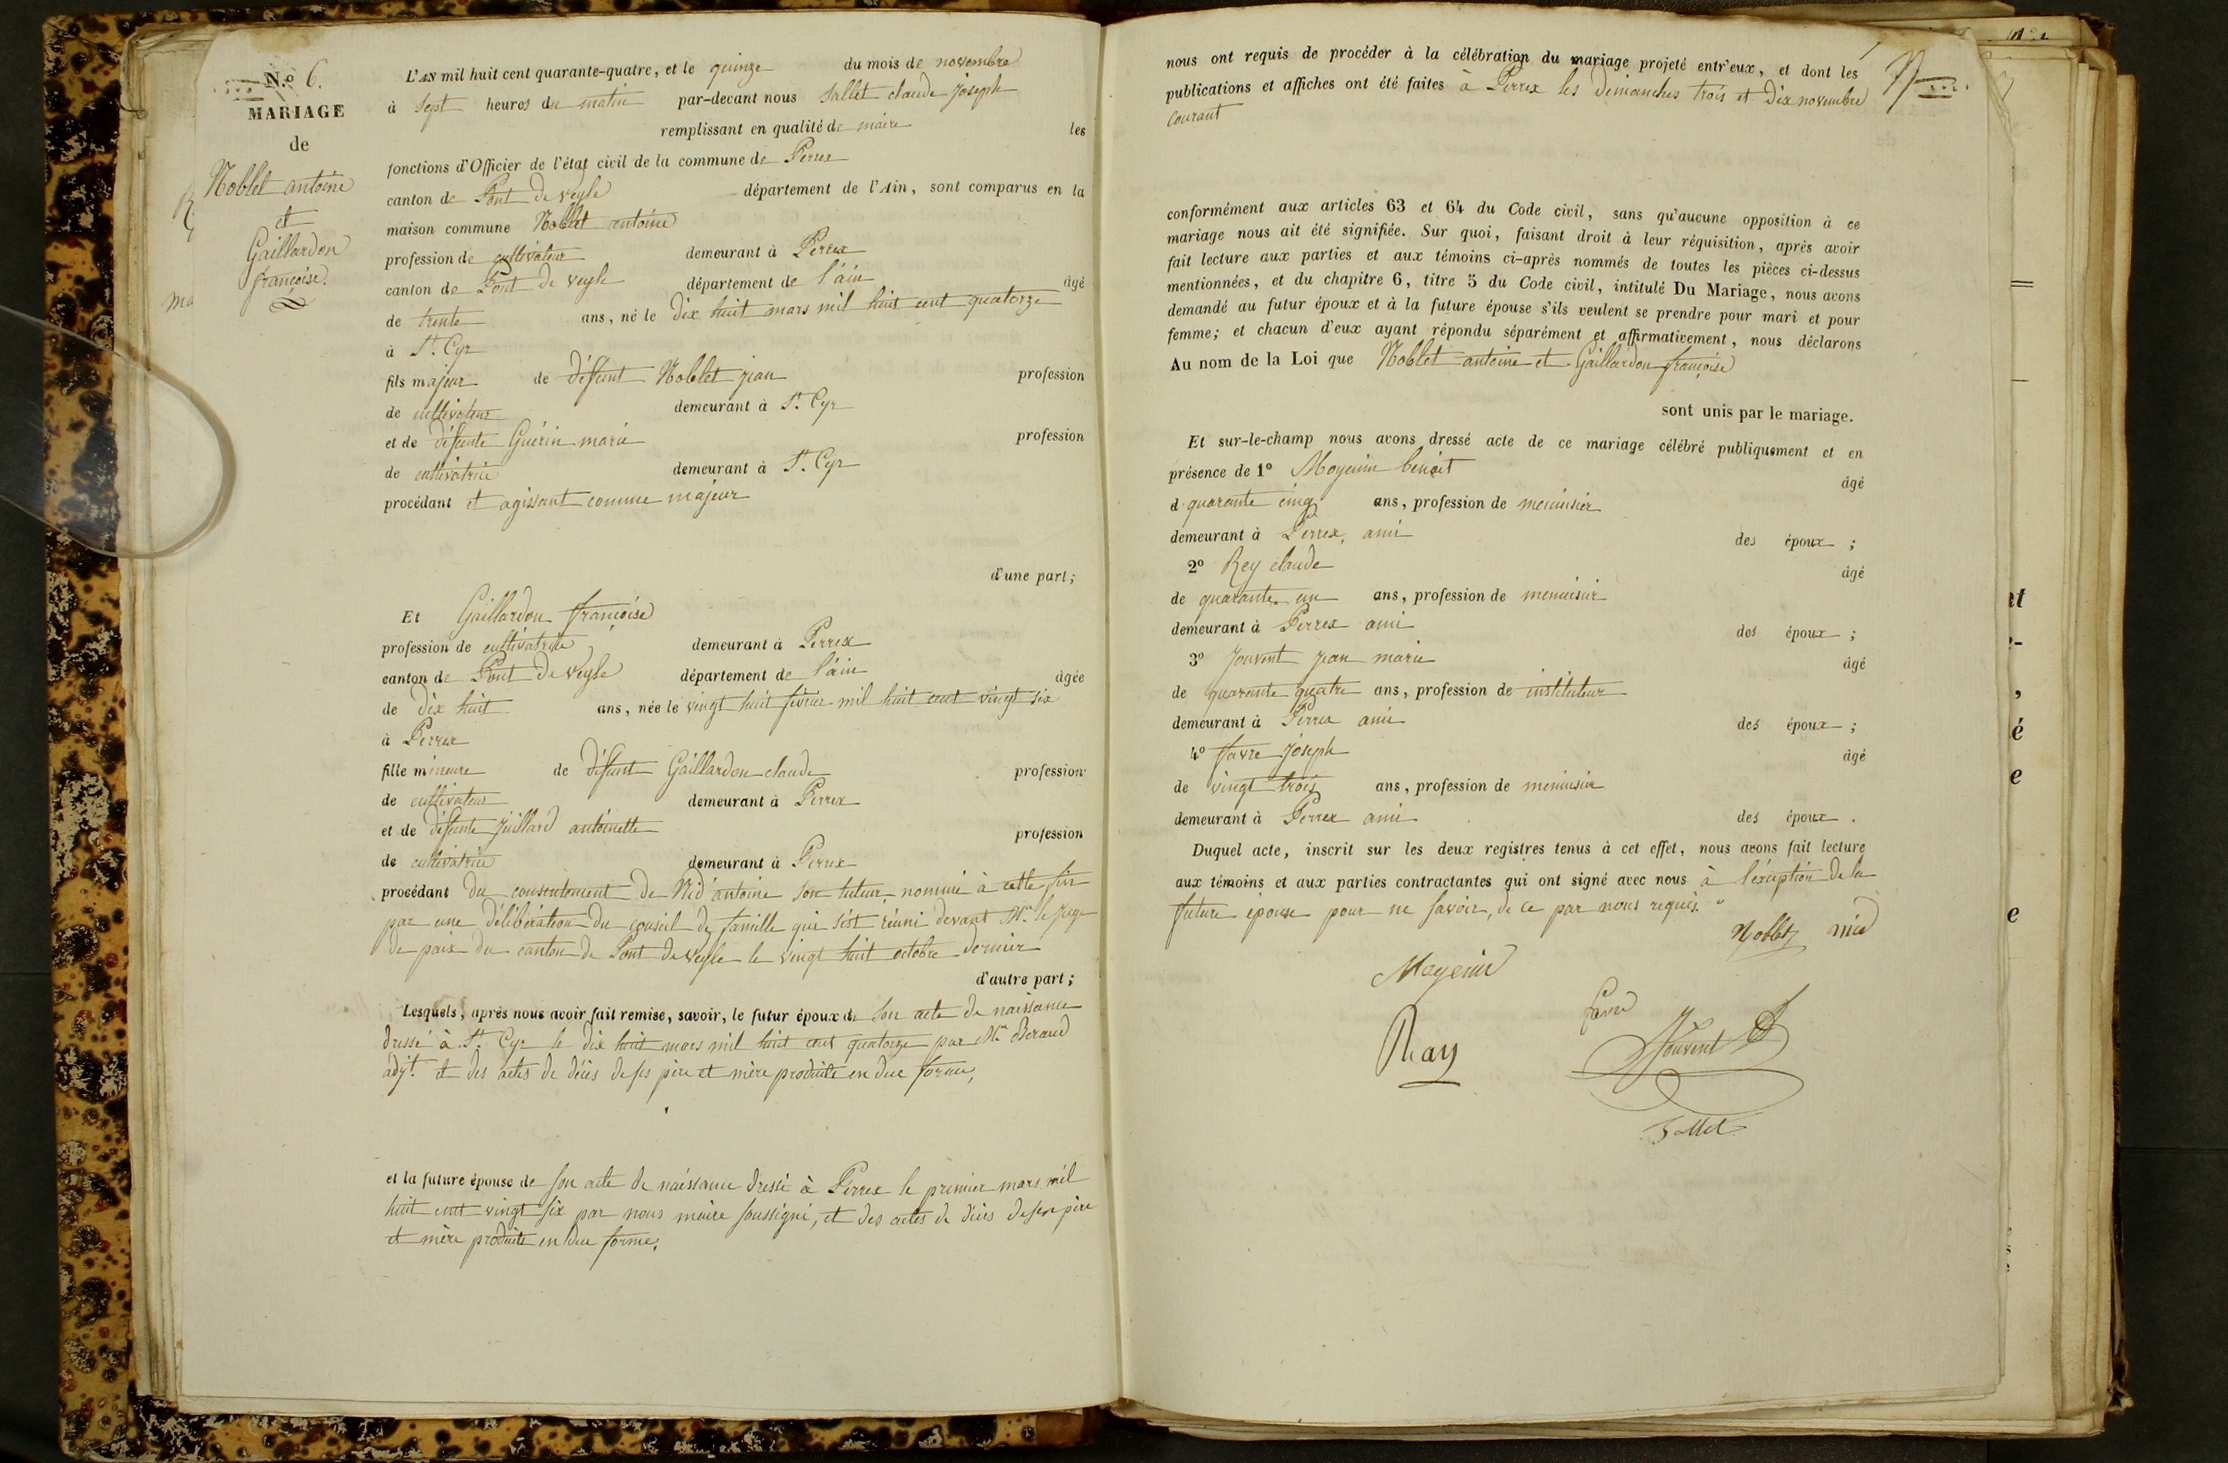 N.o 6.
MARIAGE
de
Noblet antoine
et
Gaillardon
françoise.
L'AN mil huit cent quarante-quatre, et le quinze du mois de novembre
à sept heures du matin par-devant nous Sallet claude joseph
remplissant en qualité de maire les
fonctions d'Officier de l'état civil de la commune de Perrex
canton de Pont de veyle département de l'Ain, sont comparus en la
maison commune Noblet antoine
profession de cultivateur demeurant à Perrex
canton de Pont de veyle département de l'ain âgé
de trente ans, né le dix huit mars mil huit cent quatorze
à St. Cyr
fils majeur de défunt Noblet jean profession
de cultivateur demeurant à St. Cyr
et de défunte Guérin marie profession
de cultivatrice demeurant à St. Cyr
procédant et agissant comme majeur
d'une part;
Et Gaillardon françoise
profession de cultivatrice demeurant à Perrex
canton de Pont de veyle département de l'ain âgée
de dix huit ans, née le vingt huit février mil huit cent vingt six
à Perrex
fille mineure de défunt Gaillardon claude profession
de cultivateur demeurant à Perrex
et de défunte Juillard antoinette profession
de cultivatrice demeurant à Perrex
procédant du consentement de Nid antoine son tuteur, nommé à cette fin
par une délibération du conseil de famille qui s'est réuni devant Mr. le juge
de paix du canton de Pont de veyle le vingt huit octobre dernier
d'autre part;
Lesquels, après nous avoir fait remise, savoir, le futur époux de son acte de naissance
dressé à St. Cyr le dix huit mars mil huit cent quatorze par Mr. Beraud
adjt. et des actes de décès de ses père et mère produits en due forme,
et la future épouse de son acte de naissance dressé à Perrex le premier mars mil
huit cent vingt six par nous maire soussigné, et des actes de décès de ses père
et mère produits en due forme,
nous ont requis de procéder à la célébration du mariage projeté entr'eux, et dont les
publications et affiches ont été faites à Perrex les dimanches trois et dix novembre
courant
conformément aux articles 63 et 64 du Code civil, sans qu'aucune opposition à ce
mariage nous ait été signifiée. Sur quoi, faisant droit à leur réquisition, après avoir
fait lecture aux parties et aux témoins ci-après nommés de toutes les pièces ci-dessus
mentionnées, et du chapitre 6, titre 5 du Code civil, intitulé Du Mariage, nous avons
demandé au futur époux et à la future épouse s'ils veulent se prendre pour mari et pour
femme; et chacun d'eux ayant répondu séparément et affirmativement, nous déclarons
Au nom de la Loi que Noblet antoine et Gaillardon françoise
sont unis par le mariage.
Et sur-le-champ nous avons dressé acte de ce mariage célébré publiquement et en
présence de 1o Moyenin benoit âgé
d quarante cinq ans, profession de menuisier
demeurant à Perrex, ami des époux ;
2o Rey claude âgé
de quarante un ans, profession de menuisier
demeurant à Perrex ami des époux ;
3o Jouvent jean marie âgé
de quarante quatre ans, profession de instituteur
demeurant à Perrex ami des époux ;
4o favre joseph âgé
de vingt trois ans, profession de menuisier
demeurant à Perrex ami des époux .
Duquel acte, inscrit sur les deux registres tenus à cet effet, nous avons fait lecture
aux témoins et aux parties contractantes qui ont signé avec nous à l'éxception de la
future épouse pour ne savoir, de ce par nous requis."
Noblet nid
Moyenin
favre
Ray
Jouvent
Sallet